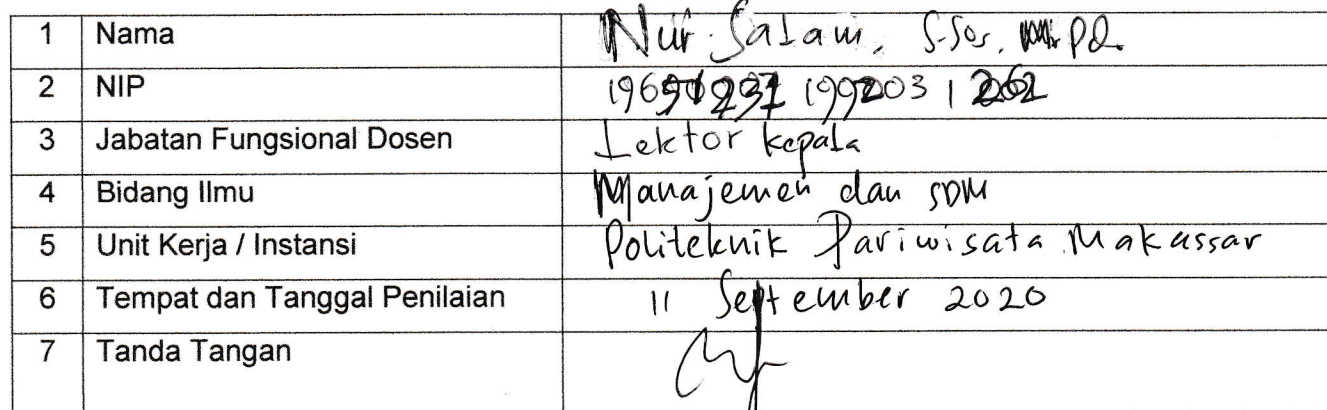 1 Nama Nur Salam, S.Sos, M.Pd
2 NIP
3 Jabatan Fungsional Dosen Lektor kepala
4 Bidang Ilmu Manajemen dan SDM
5 Unit Kerja / Instansi Politeknik Pariwisata Makassar
6 Tempat dan Tanggal Penilaian 11 September 2020
7 Tanda Tangan